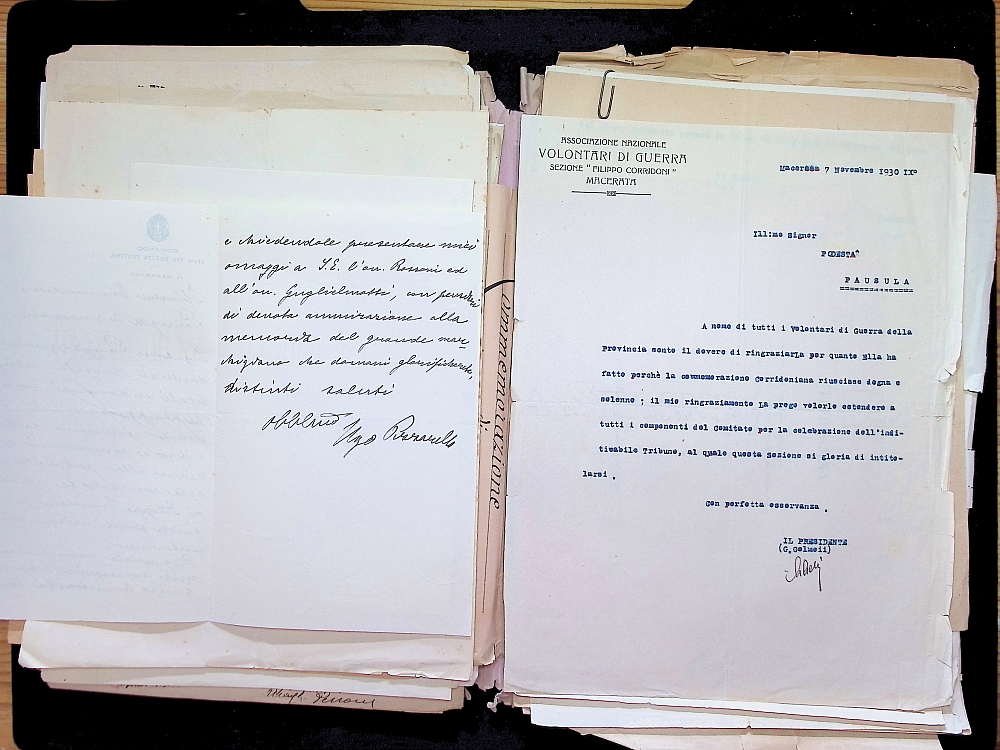 e chiedendole presentare miei
omaggi a S.E. l'on. Rossoni ed
all'on. Guglielmotti, con pensieri
di devota ammirazione alla
memoria del grande mar-
chigiano che domani glorificherete,
distinti saluti
Ugo
Commemorazione
ASSOCIAZIONE NAZIONALE
VOLONTARI DI GUERRA
SEZIONE "FILIPPO CORRIDONI"
MACERATA
Macerata 7 Novembre 1930 IX°
Ill:mo Signor
PODESTA^
PAUSULA
A nome di tutti i Volontari di Guerra della
Provincia sento il dovere di ringraziarLa per quanto Ella ha
fatto perchè la commemorazione Corridoniana riuscisse degna e
solenne ; il mio ringraziamento La prego volerlo estendere a
tutti i componenti del Comitato per la celebrazione dell'indi-
tibabile Tribuno, al quale questa Sezione si gloria di intito-
larsi .
Con perfetta osservanza .
IL PRESIDENTE